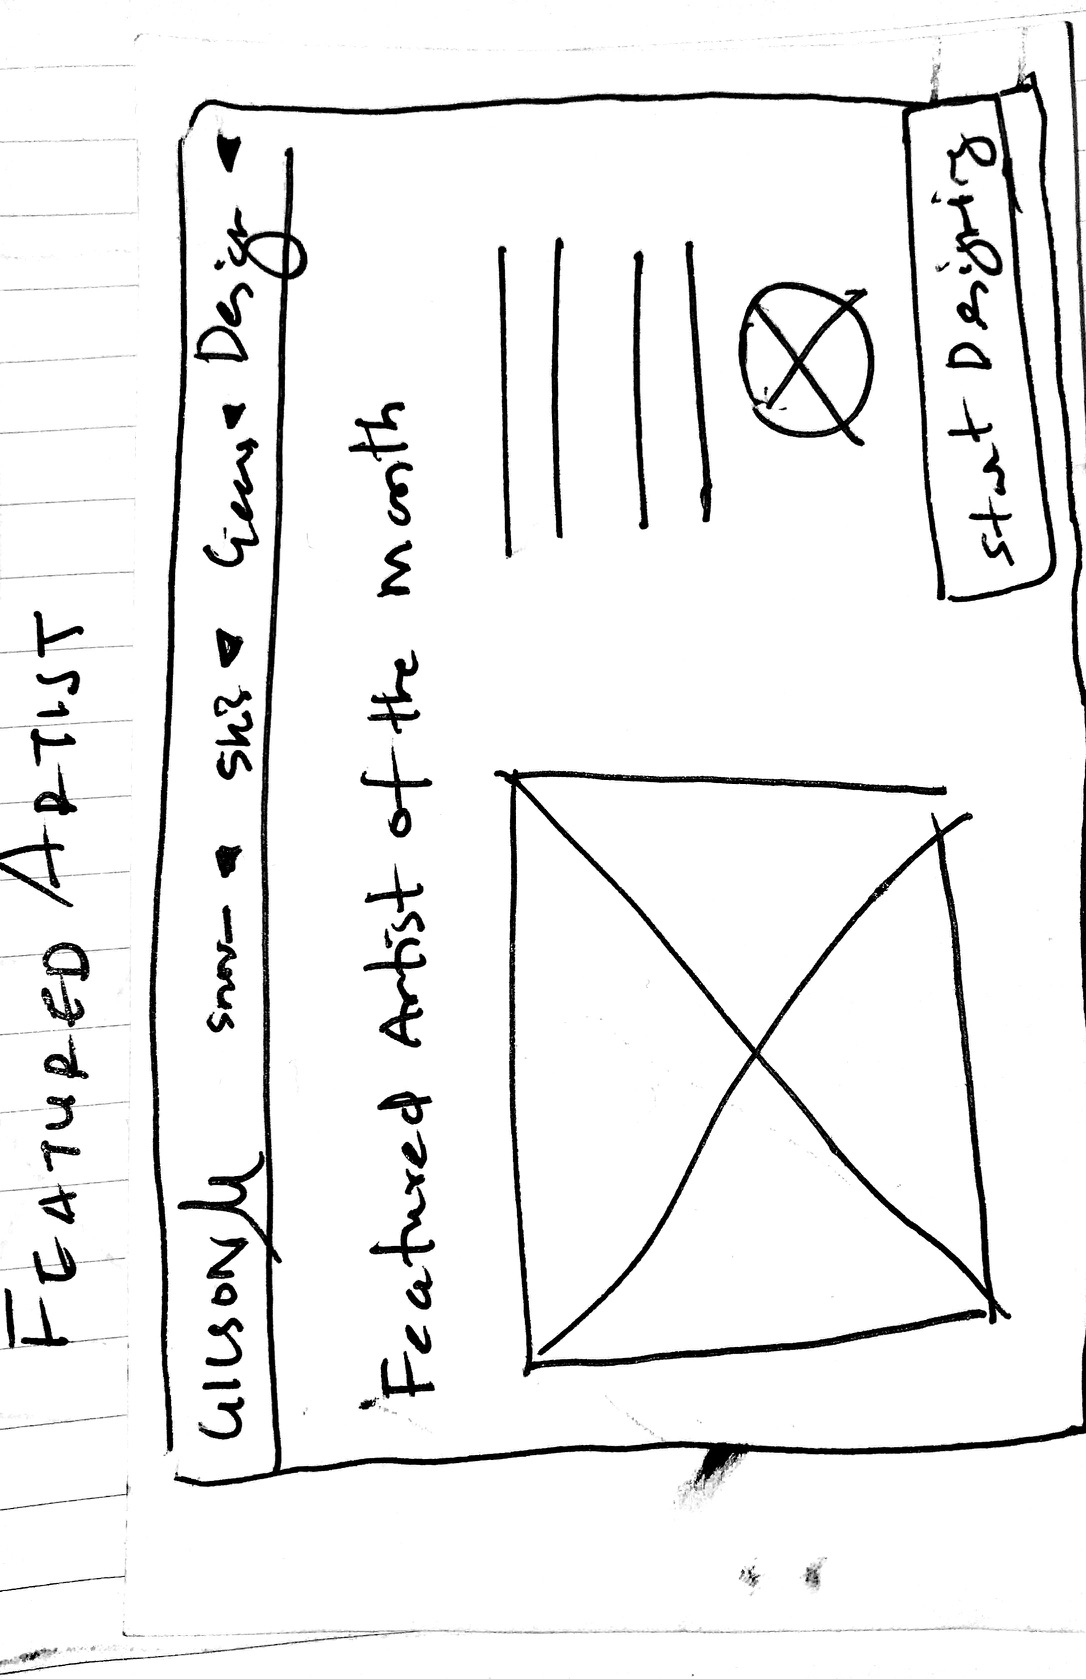 FEATURED ARTIST
GILSON
Snow Ski Gear Design
Featured Artist of the month
Start Designing